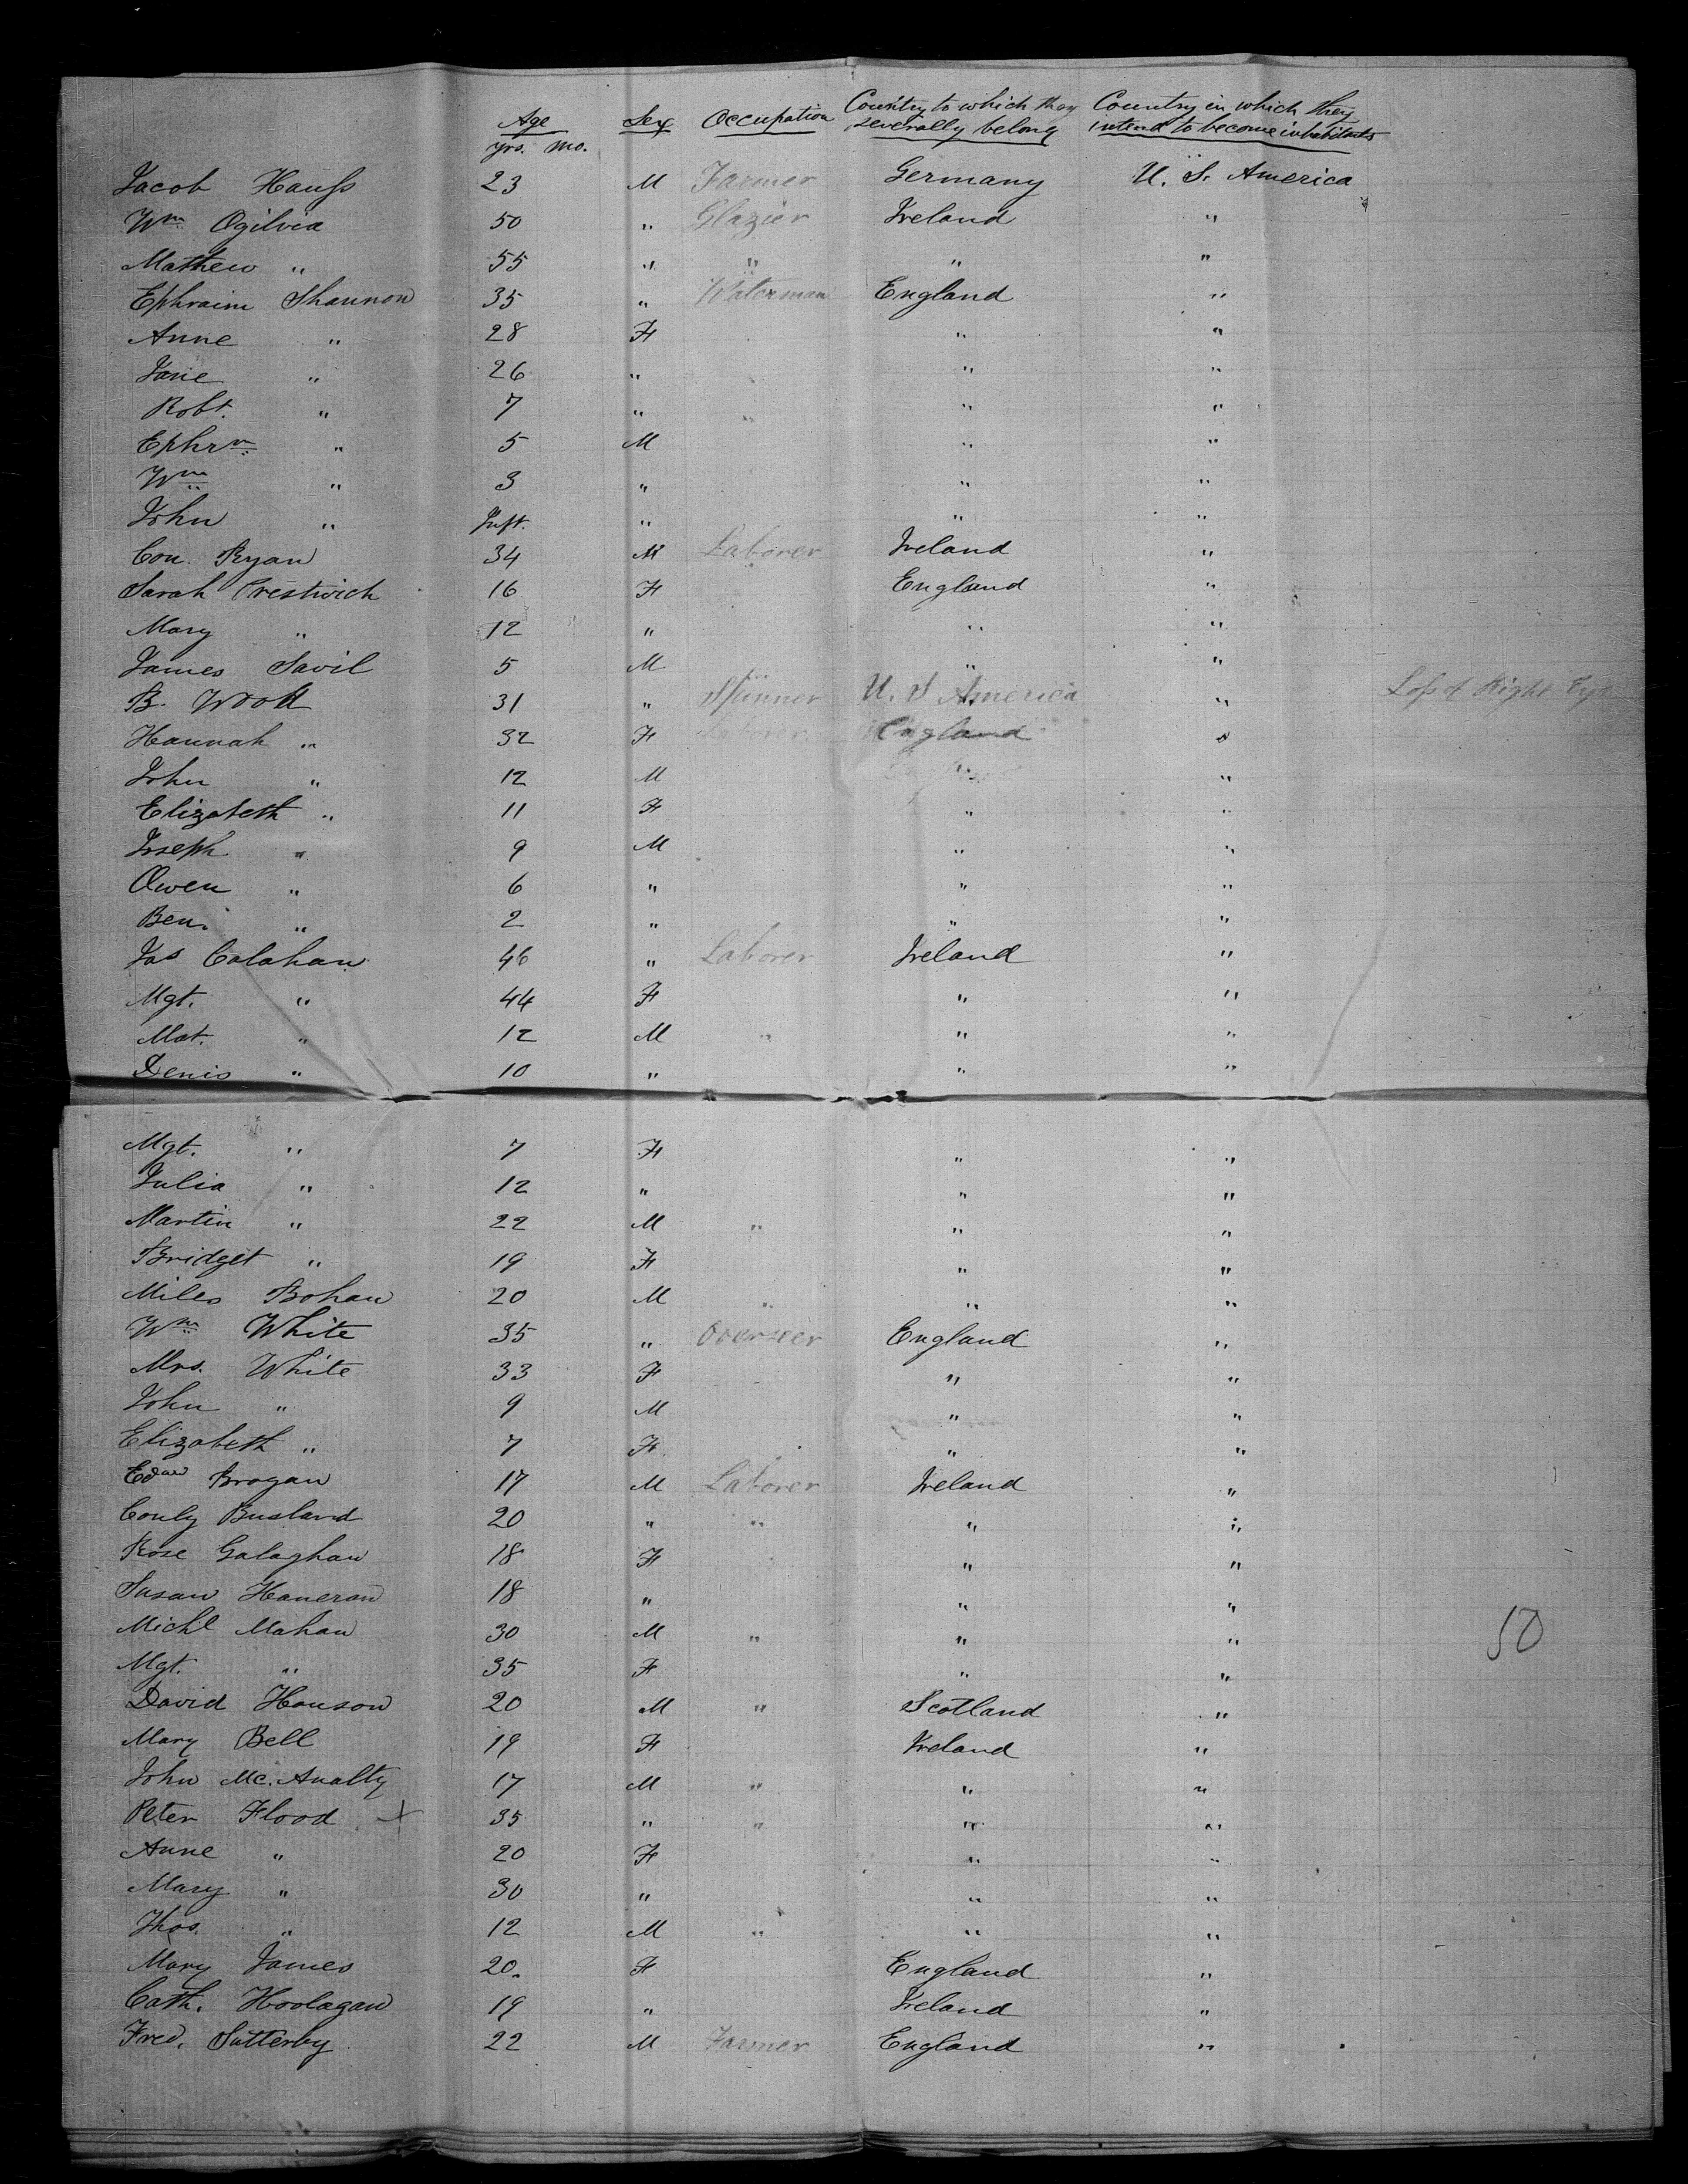 Age Sex Occupation Country to which they severally belong Country in which they intend to become inhabitants
yrs. mo.
Jacob Hauss 23 M Farmer Germany U. S. America
Wm Ogilvia 50 " Glazier Ireland "
Mathew " 55 " " " "
Ephraim Shannon 35 " Waterman England "
Anne " 28 F " "
Jane " 26 " " "
Robt. " 7 " " "
Ephrm " 5 M " "
Wm " 3 " " "
John " Inft. " " "
Con. Ryan 34 M Laborer Ireland "
Sarah Prestwich 16 F England "
Mary " 12 " " "
James Savil 5 M " "
B. Wood 31 " Spinner U. S America " Loss of Right Eye
Hannah " 32 F England "
John " 12 M " "
Elizabeth " 11 F " "
Joseph " 9 M " "
Owen " 6 " " "
Ben. " 2 " " "
Jas Calahan 46 " Laborer Ireland "
Mgt. " 44 F " "
Mat. " 12 M " " "
Denis " 10 " " "
Mgt. " 7 F " "
Julia " 12 " " "
Martin " 22 M " " "
Bridget " 19 F " "
Miles Bohan 20 M " " "
Wm White 35 " Overseer England "
Mrs. White 33 F " "
John " 9 M " "
Elizabeth " 7 F " "
Edwd Brogan 17 M Laborer Ireland "
Conly Busland 20 " " " "
Rose Galaghan 18 F " "
Susan Haneran 18 " " "
Michl Mahan 30 M " " " 50
Mgt. " 35 F " "
David Hanson 20 M " Scotland "
Mary Bell 19 F Ireland "
John Mc. Analty 17 M " " "
Peter Flood + 35 " " " "
Anne " 20 F " "
Mary " 30 " " "
Thos. " 12 M " " "
Mary James 20. F England "
Cath. Hoolagan 19 " Ireland "
Fred. Sutterby 22 M Farmer England "